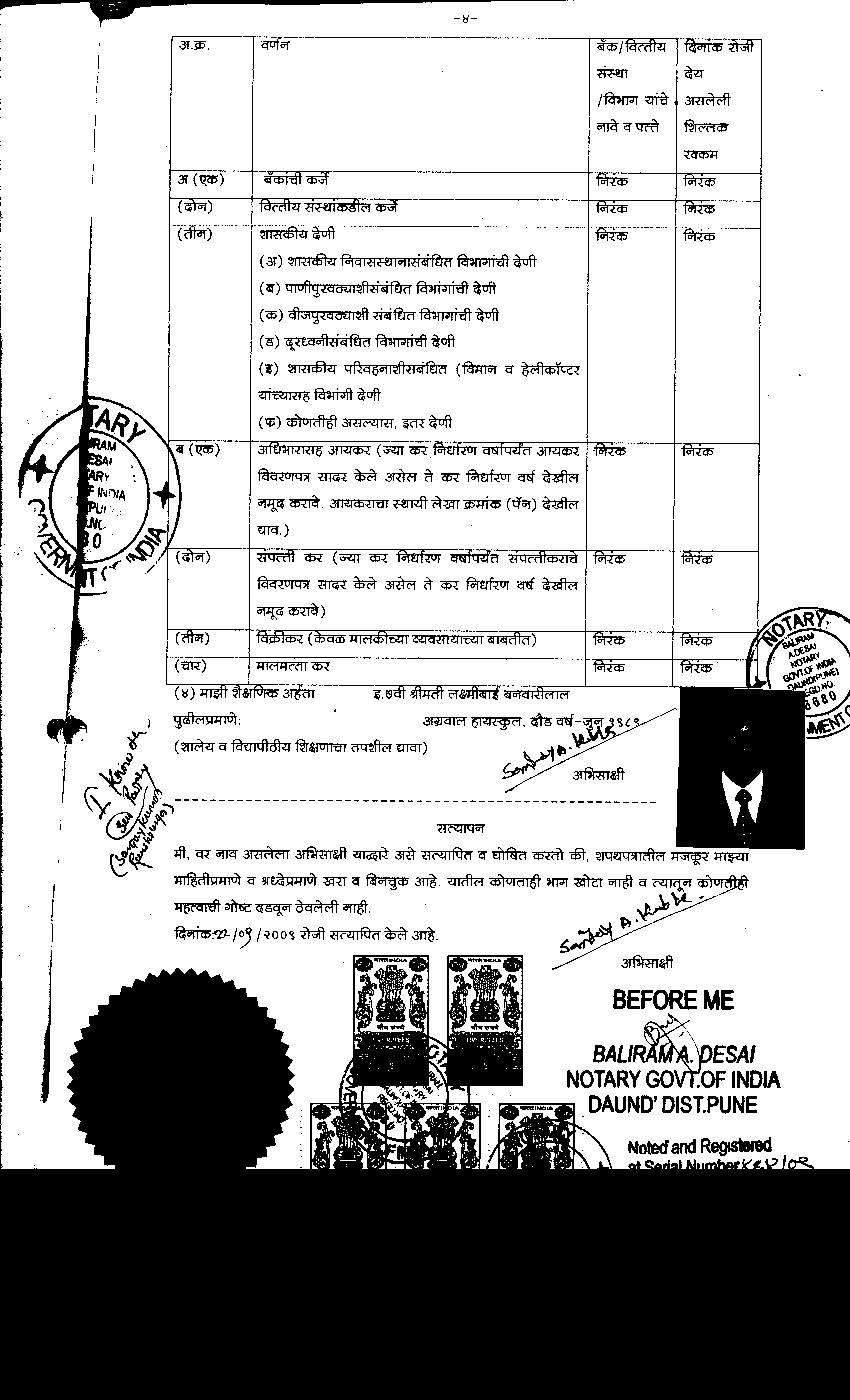 -४-
अ.क्र. वर्णन बँक/वित्तीय दिनांक रोजी
संस्था देय
/विभाग यांचे असलेली
नावे व पत्ते शिल्लक
रक्कम
अ (एक) बँकांची कर्जे निरंक निरंक
(दोन) वित्तीय संस्थांकडील कर्जे निरंक निरंक
(तीन) शासकीय देणी निरंक निरंक
(अ) शासकीय निवासस्थानासंबंधित विभागांची देणी
(ब) पाणीपुरवठ्याशीसंबंधित विभांगांची देणी
(क) वीजपुरवठ्याशी संबंधित विभागांची देणी
(ड) दूरध्वनीसंबंधित विभागांची देणी
(इ) शासकीय परिवहनाशीसंबंधित (विमान व हेलीकॉप्टर
यांच्यासह विभांगी देणी
(फ) कोणतीही असल्यास, इतर देणी
ब (एक) अधिभारासह आयकर (ज्या कर निर्धारण वर्षापर्यंत आयकर निरंक निरंक
विवरणपत्र सादर केले असेल ते कर निर्धारण वर्ष देखील
नमूद करावे. आयकराचा स्थायी लेखा क्रमांक (पॅन) देखील
द्याव.)
(दोन) संपत्ती कर (ज्या कर निर्धारण वर्षापर्यंत संपत्तीकराचे निरंक निरंक
विवरणपत्र सादर केले असेल ते कर निर्धारण वर्ष देखील
नमूद करावे)
(तीन) विक्रीकर (केवळ मालकीच्या व्यवसायाच्या बाबतीत) निरंक निरंक
(चार) मालमत्ता कर निरंक निरंक
(४) माझी शैक्षणिक अर्हता इ.७वी श्रीमती लक्ष्मीबाई बनवारीलाल
पुढीलप्रमाणे: अग्रवाल हायस्कुल, दौंड वर्ष-जून १९८९
(शालेय व विद्यापीठीय शिक्षणाचा तपशील द्यावा)
अभिसाक्षी
सत्यापन
मी, वर नाव असलेला अभिसाक्षी याद्वारे असे सत्यापित व घोषित करतो की, शपथपत्रातील मजकूर माझ्या
माहितीप्रमाणे व श्रध्देप्रमाणे खरा व बिनचुक आहे. यातील कोणताही भाग खोटा नाही व त्यातून कोणतीही
महत्वाची गोष्ट दडवून ठेवलेली नाही.
Sanjay A.
दिनांक /०९/२००९ रोजी सत्यापित केले आहे.
अभिसाक्षी
BEFORE ME
BALIRAM A. DESAI
NOTARY GOVT.OF INDIA
DAUND' DIST.PUNE
Noted and Registered
at Serial Number
NOTARY
BALIRAM
A.DESAI
NOTARY
GOVT.OF INDIA
DAUND(PUNE)
REGD.NO.
6680
I Know the